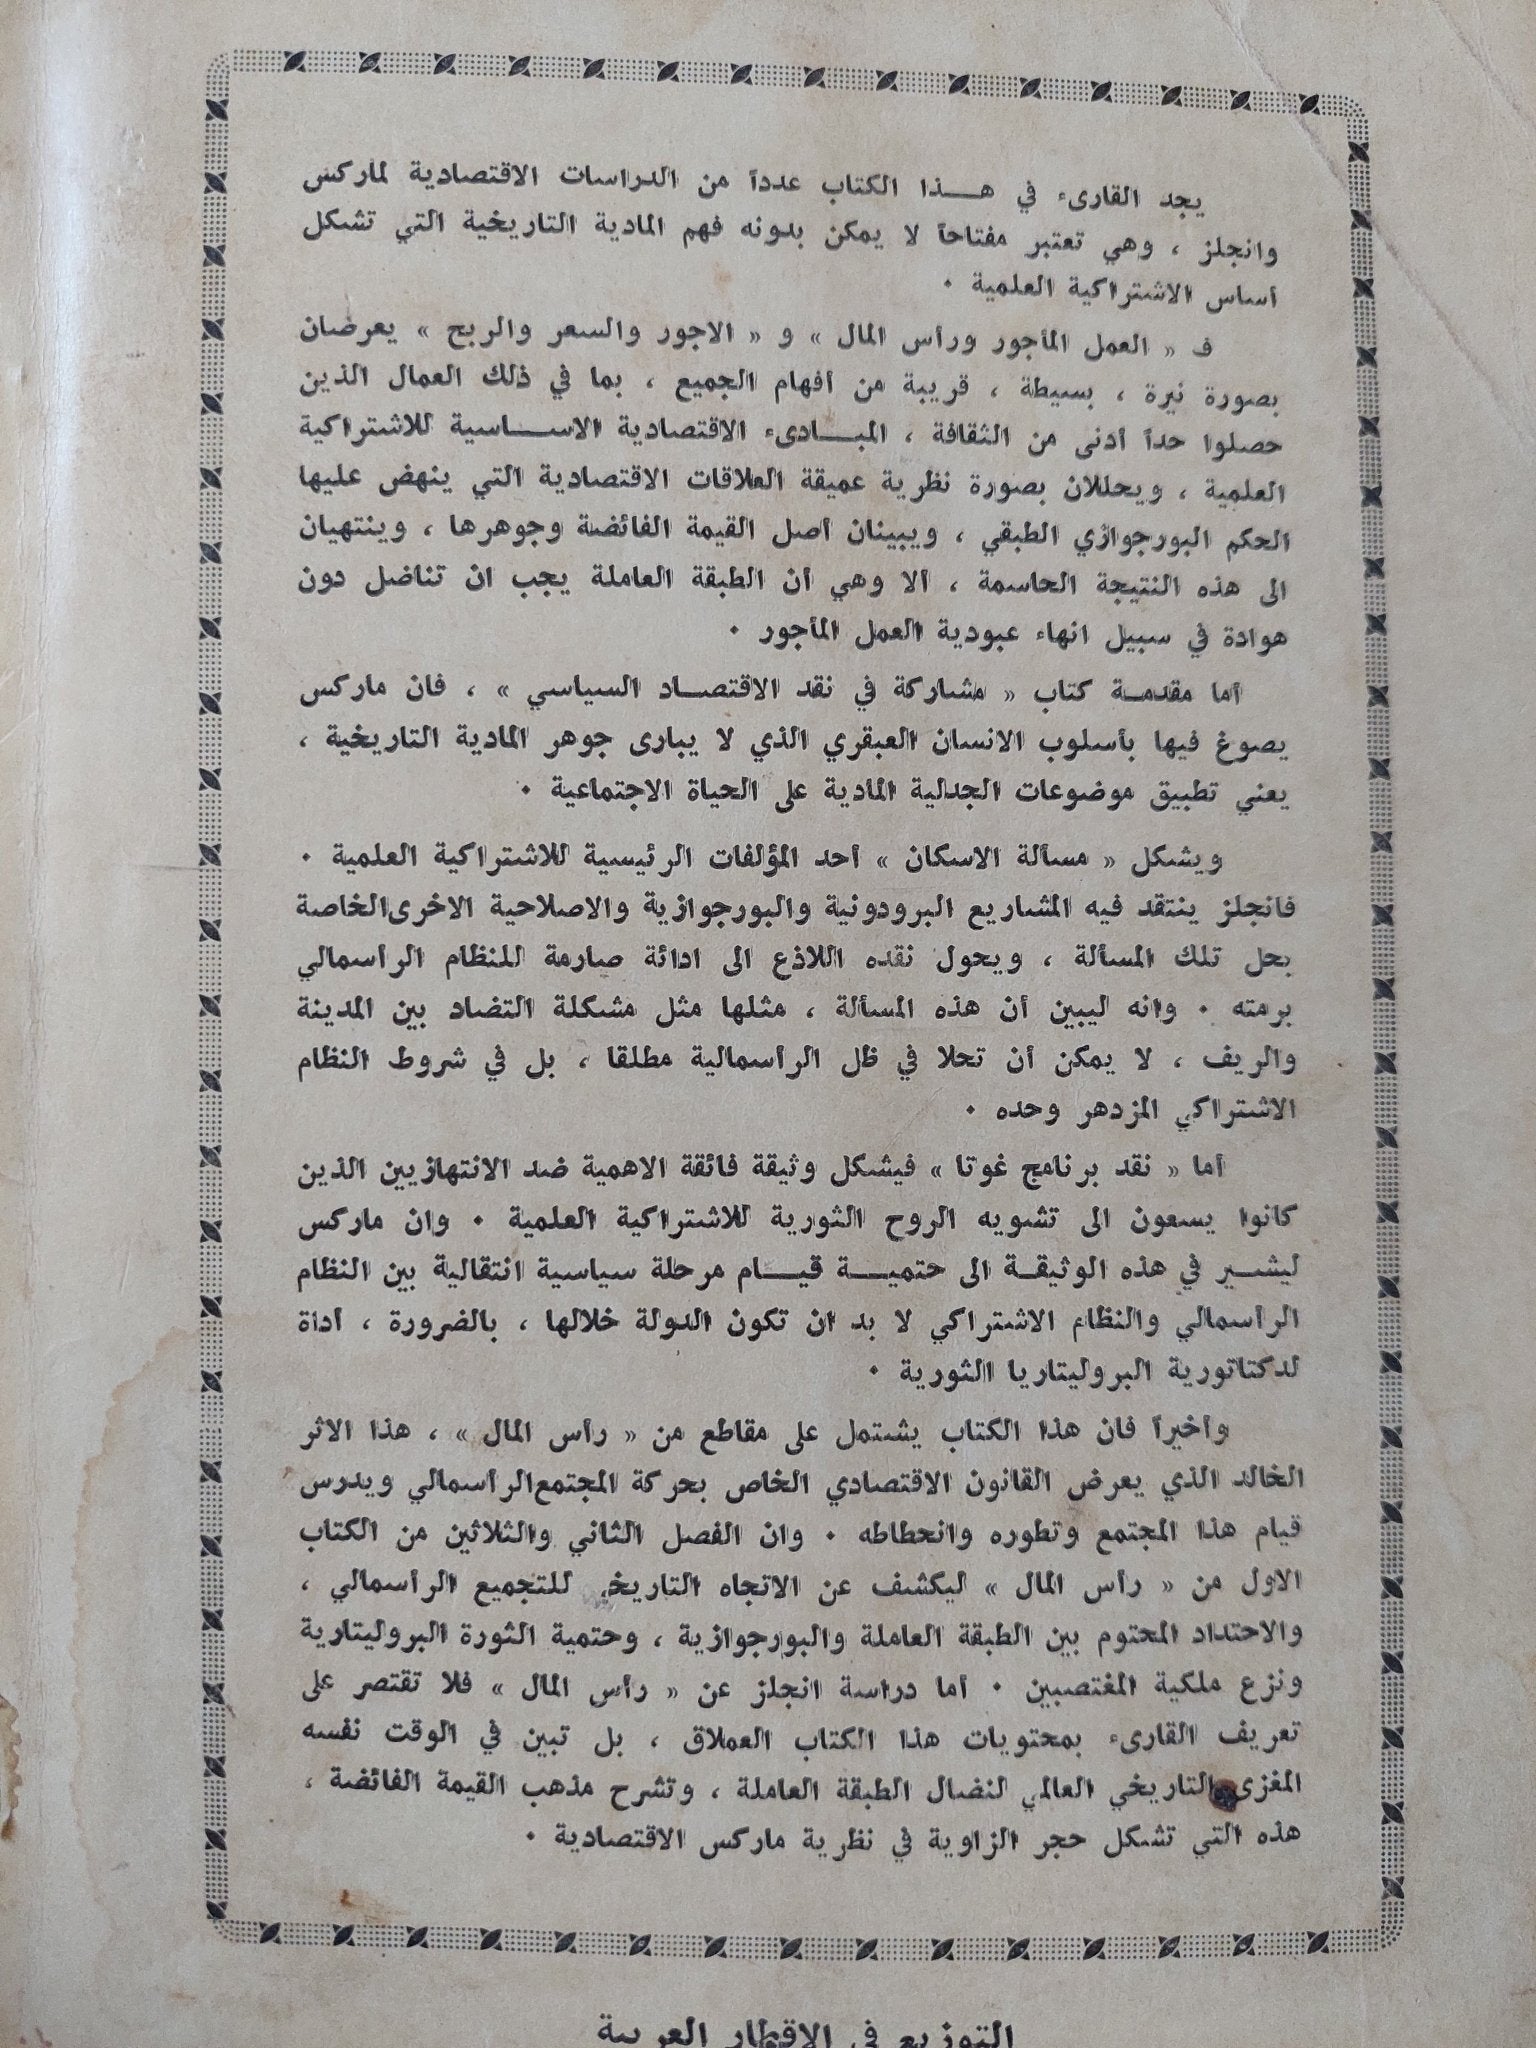 يجد القارىء في هـــذا الكتاب عدداً من الدراسات الاقتصادية لماركس
وانجلز ، وهي تعتبر مفتاحاً لا يمكن بدونه فهم المادية التاريخية التي تشكل
أساس الاشتراكية العلمية ٠
ف « العمل المأجور ورأس المال » و « الاجور والسعر والربح » يعرضان
بصورة نيرة ، بسيطة ، قريبة من أفهام الجميع ، بما في ذلك العمال الذين
حصلوا حداً أدنى من الثقافة ، المبـــادىء الاقتصادية الاســـاسية للاشتراكية
العلمية ، ويحللان بصورة نظرية عميقة العلاقات الاقتصادية التي ينهض عليها
الحكم البورجوازي الطبقي ، ويبينان أصل القيمة الفائضة وجوهرها ، وينتهيان
الى هذه النتيجة الحاسمة ، ألا وهي أن الطبقة العاملة يجب ان تناضل دون
هوادة في سبيل انهاء عبودية العمل المأجور ٠
أما مقدمـة كتاب « مشاركة في نقد الاقتصـاد السياسي » ، فان ماركس
يصوغ فيها بأسلوب الانسان العبقري الذي لا يبارى جوهر المادية التاريخية ،
يعني تطبيق موضوعات الجدلية المادية على الحياة الاجتماعية ٠
ويشكل « مسألة الاسكان » أحد المؤلفات الرئيسية للاشتراكية العلمية ٠
فانجلز ينتقد فيه المشاريع البرودونية والبورجوازية والاصلاحية الاخرى الخاصة
بحل تلك المسألة ، ويحول نقده اللاذع الى ادانة صارمة للنظام الرأسمالي
برمته ٠ وانه ليبين أن هذه المسألة ، مثلها مثل مشكلة التضاد بين المدينة
والريف ، لا يمكن أن تحلا في ظل الرأسمالية مطلقا ، بل في شروط النظام
الاشتراكي المزدهر وحده ٠
أما « نقد برنامج غوتا » فيشكل وثيقة فائقة الاهمية ضد الانتهازيين الذين
كانوا يسعون الى تشويه الروح الثورية للاشتراكية العلمية ٠ وان ماركس
ليشـير في هذه الوثيقـة الى حتميـــة قيـــام مرحلة سياسية انتقالية بين النظام
الرأسمالي والنظام الاشتراكي لا بد ان تكون الدولة خلالها ، بالضرورة ، أداة
لدكتاتورية البروليتاريا الثورية ٠
وأخيراً فان هذا الكتاب يشتمل على مقاطع من « رأس المال » ، هذا الاثر
الخالد الذي يعرض القانون الاقتصادي الخاص بحركة المجتمع الرأسمالي ويدرس
قيام هذا المجتمع وتطوره وانحطاطه ٠ وان الفصل الثاني والثلاثين من الكتاب
الاول من « رأس المال » ليكشف عن الاتجاه التاريخي للتجميع الرأسمالي ،
والاحتداد المحتوم بين الطبقة العاملة والبورجوازية ، وحتمية الثورة البروليتارية
ونزع ملكية المغتصبين ٠ أما دراسة انجلز عن « رأس المال » فلا تقتصر على
تعريف القارىء بمحتويات هذا الكتاب العملاق ، بل تبين في الوقت نفسه
المغزى التاريخي العالمي لنضال الطبقة العاملة ، وتشرح مذهب القيمة الفائضة ،
هذه التي تشكل حجر الزاوية في نظرية ماركس الاقتصادية ٠
التوزيع في الاقطار العربية